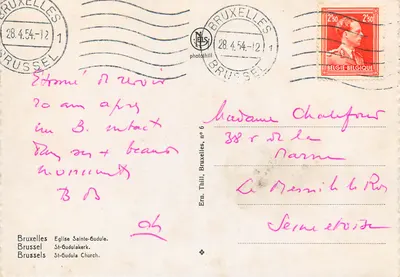 BRUXELLES
28.4.54.-12
1
BRUSSEL
BRUXELLES
28.4.54.-12
1
BRUSSEL
2F50
2F50
BELGIE-BELGIQUE
NELS
photothill
Ern. Thill, Bruxelles, nº 6
Etonné de revoir
20 ans après
un B. intact
dans ses + beaux
monuments
B B
Madame
38 r de la
Marne
Le Mesnil le Roi
Seine et Oise
Bruxelles Eglise Sainte-Gudule.
Brussel St-Gudulakerk.
Brussels St-Gudula Church.